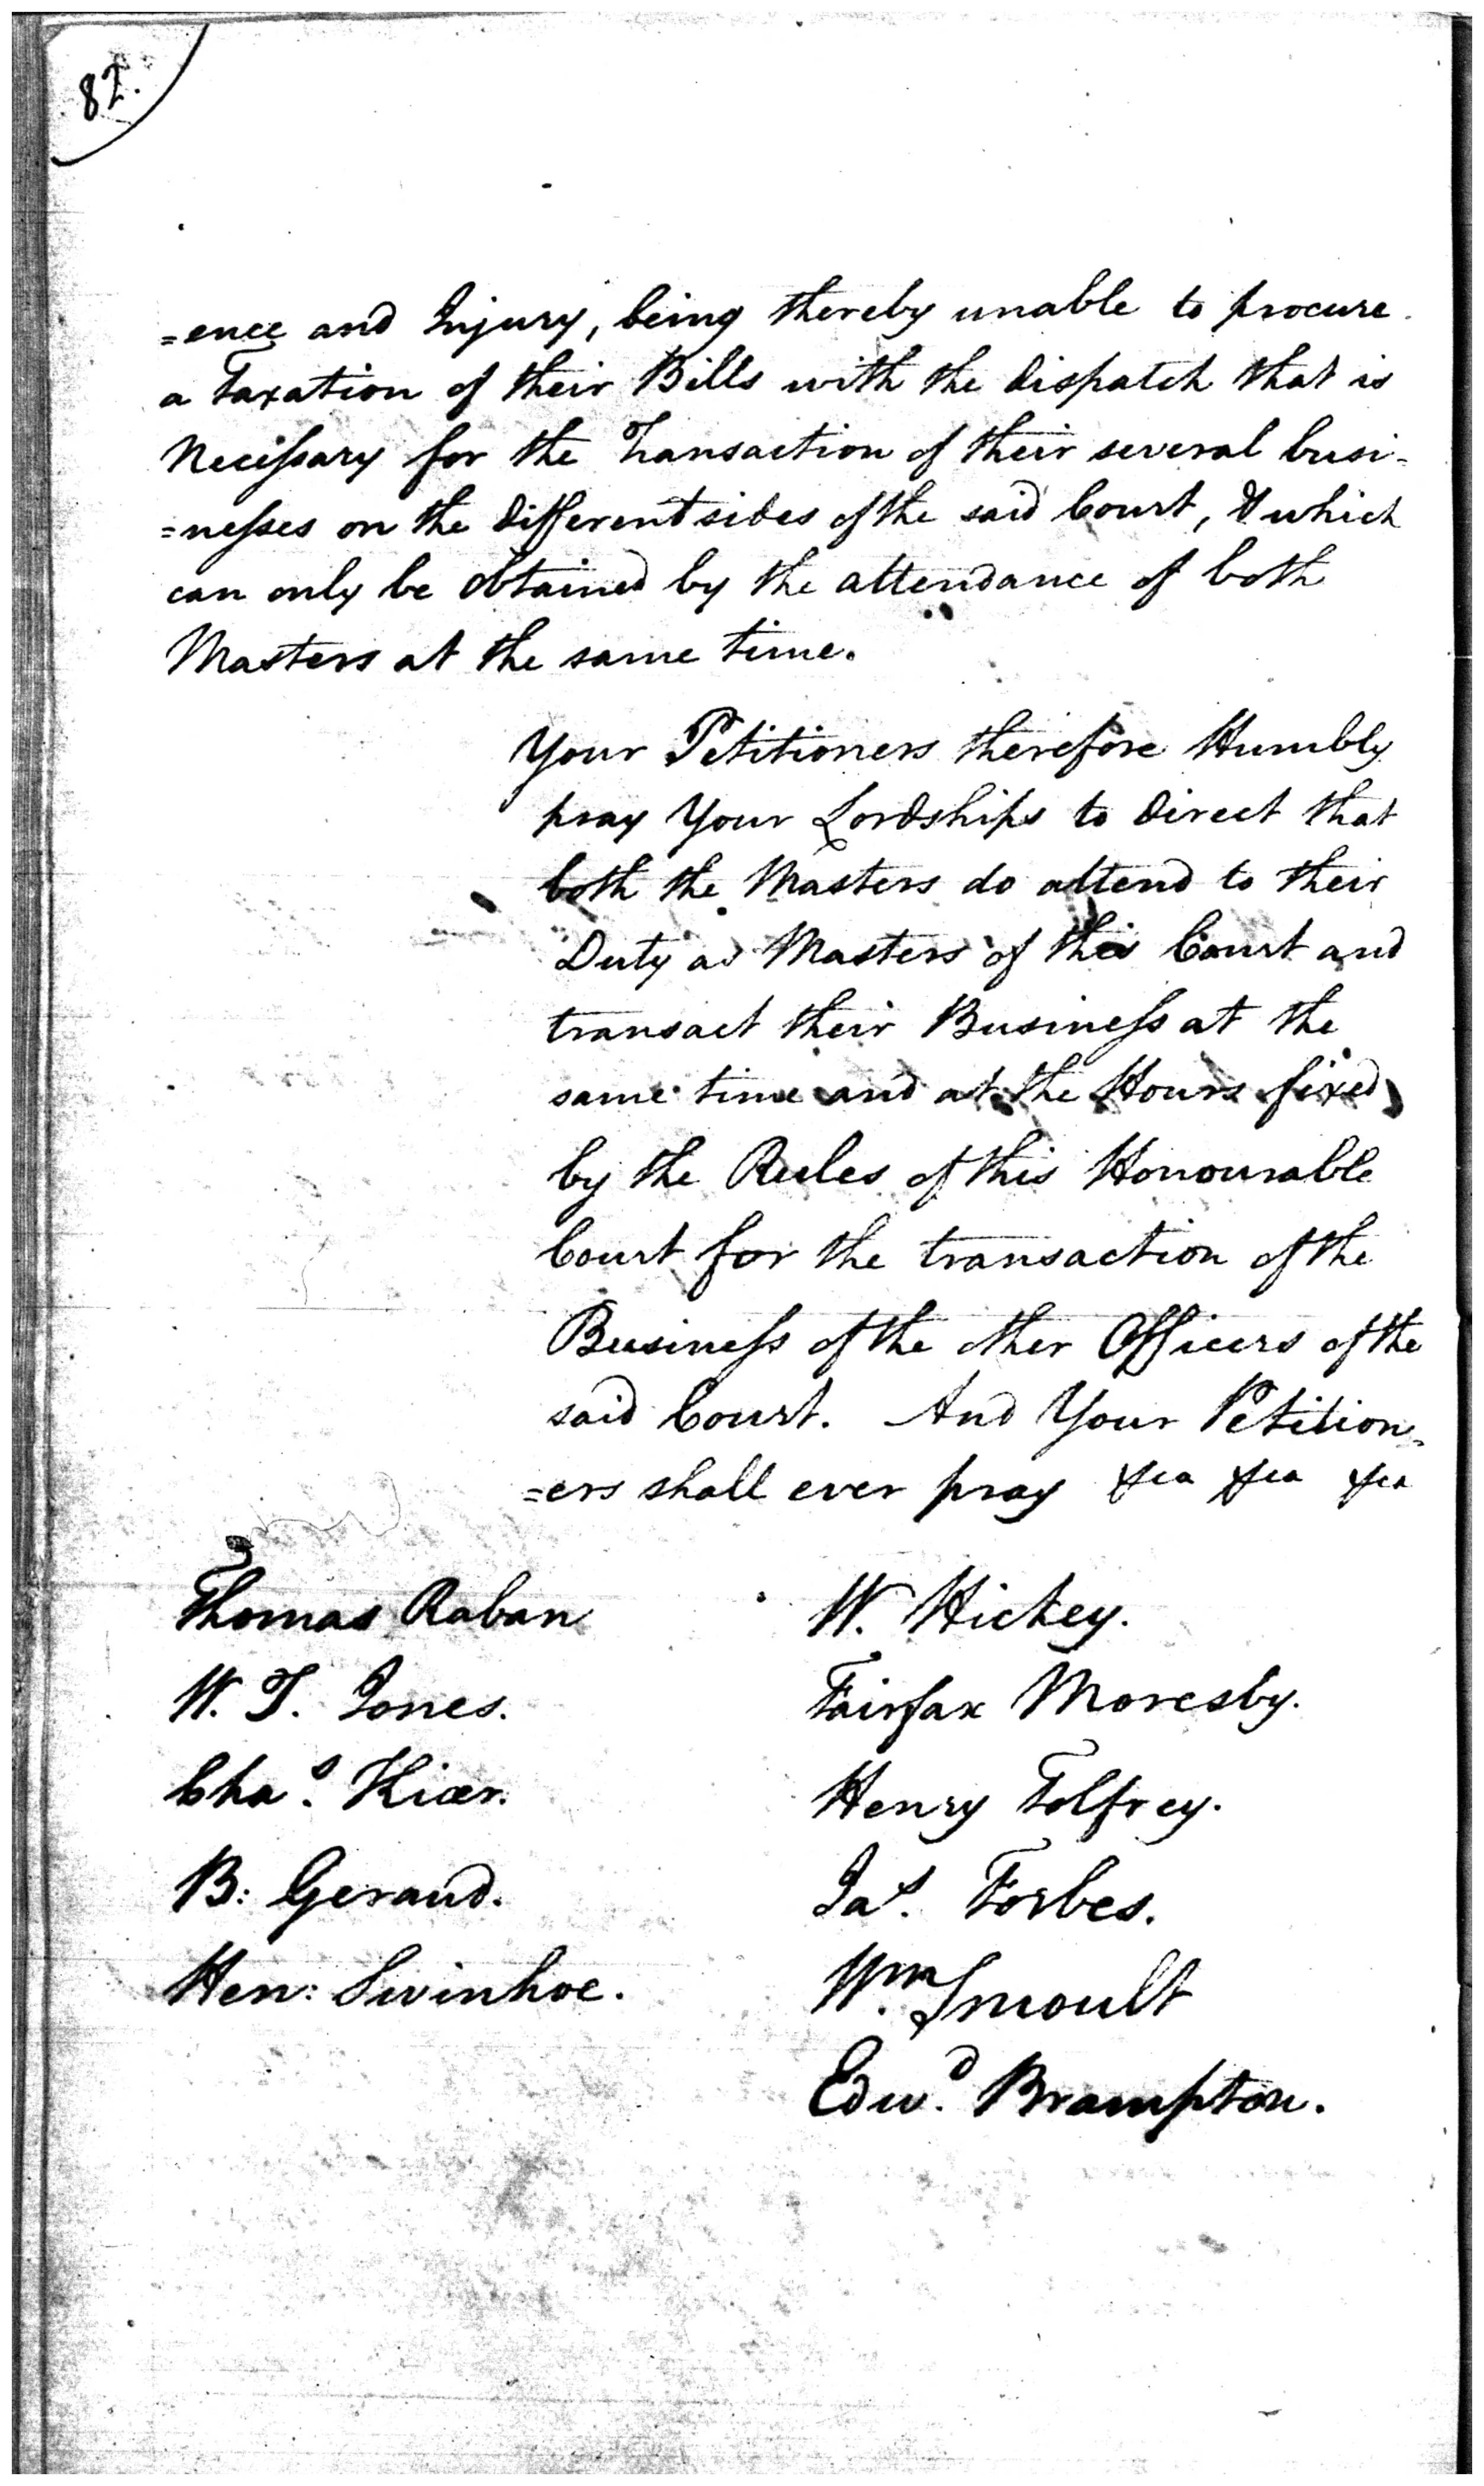 82.
=ence and Injury, being thereby unable to procure
a Taxation of their Bills with the dispatch that is
Neceſsary for the Transaction of their several busi=
=neſses on the different sides of the said Court, & which
can only be obtained by the attendance of both
Masters at the same time.
Your Petitioners therefore Humbly
pray Your Lordships to direct that
both the Masters do attend to their
Duty as Masters of this Court and
transact their Business at the
same time and at the Hours fixed
by the Rules of this Honourable
Court for the transaction of the
Busineſs of the other Officers of the
said Court. And Your Petition=
=ers shall ever pray &ca &ca &ca
Thomas Raban
W. Hickey.
W. T. Jones.
Fairfax Moresby.
Chas. Kiær.
Henry Tolfrey.
B: Geraud.
Jas. Forbes.
Hen: Swinhoe.
Wm. Smoult
Edwd. Brampton.